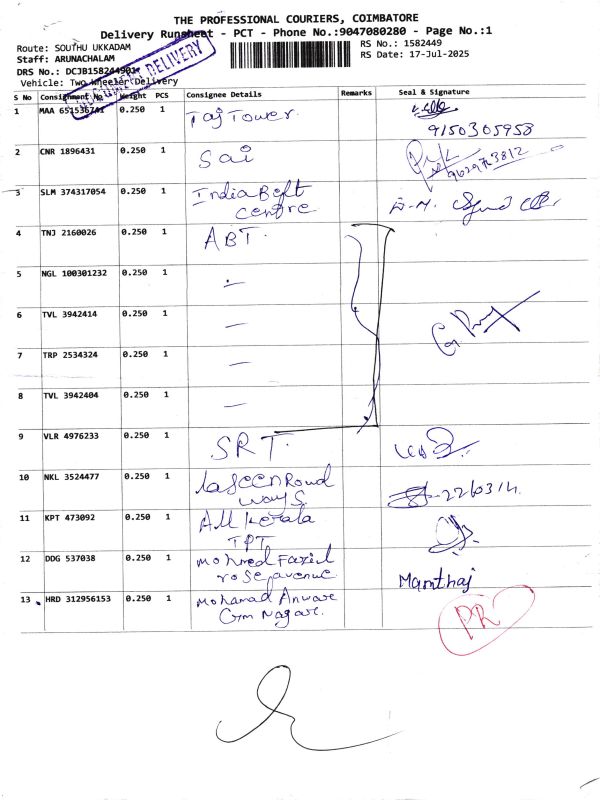 THE PROFESSIONAL COURIERS, COIMBATORE
Delivery Runsheet - PCT - Phone No.:9047080280 - Page No.:1
Route: SOUTHU UKKADAM
RS No.: 1582449
Staff: ARUNACHALAM
RS Date: 17-Jul-2025
DRS No.: DCJB1582449
DELIVERY
Vehicle: Two Wheeler Delivery
S No Consignment No Weight PCS Consignee Details Remarks Seal & Signature
1 MAA 651536741 0.250 1 Taj Tower.
9150305958
2 CNR 1896431 0.250 1 Sai
3 SLM 374317054 0.250 1 India Belt
Centre
4 TNJ 2160026 0.250 1 ABT.
5 NGL 100301232 0.250 1 —
6 TVL 3942414 0.250 1 —
7 TRP 2534324 0.250 1 —
8 TVL 3942404 0.250 1 —
9 VLR 4976233 0.250 1 SRT.
10 NKL 3524477 0.250 1
ways.
11 KPT 473092 0.250 1 All Kerala
TPT
12 DDG 537038 0.250 1 Mohmed Fazil
rose avenue Mamthaj
13 HRD 312956153 0.250 1 Mohamad Anware
Gm Nagare.
PR